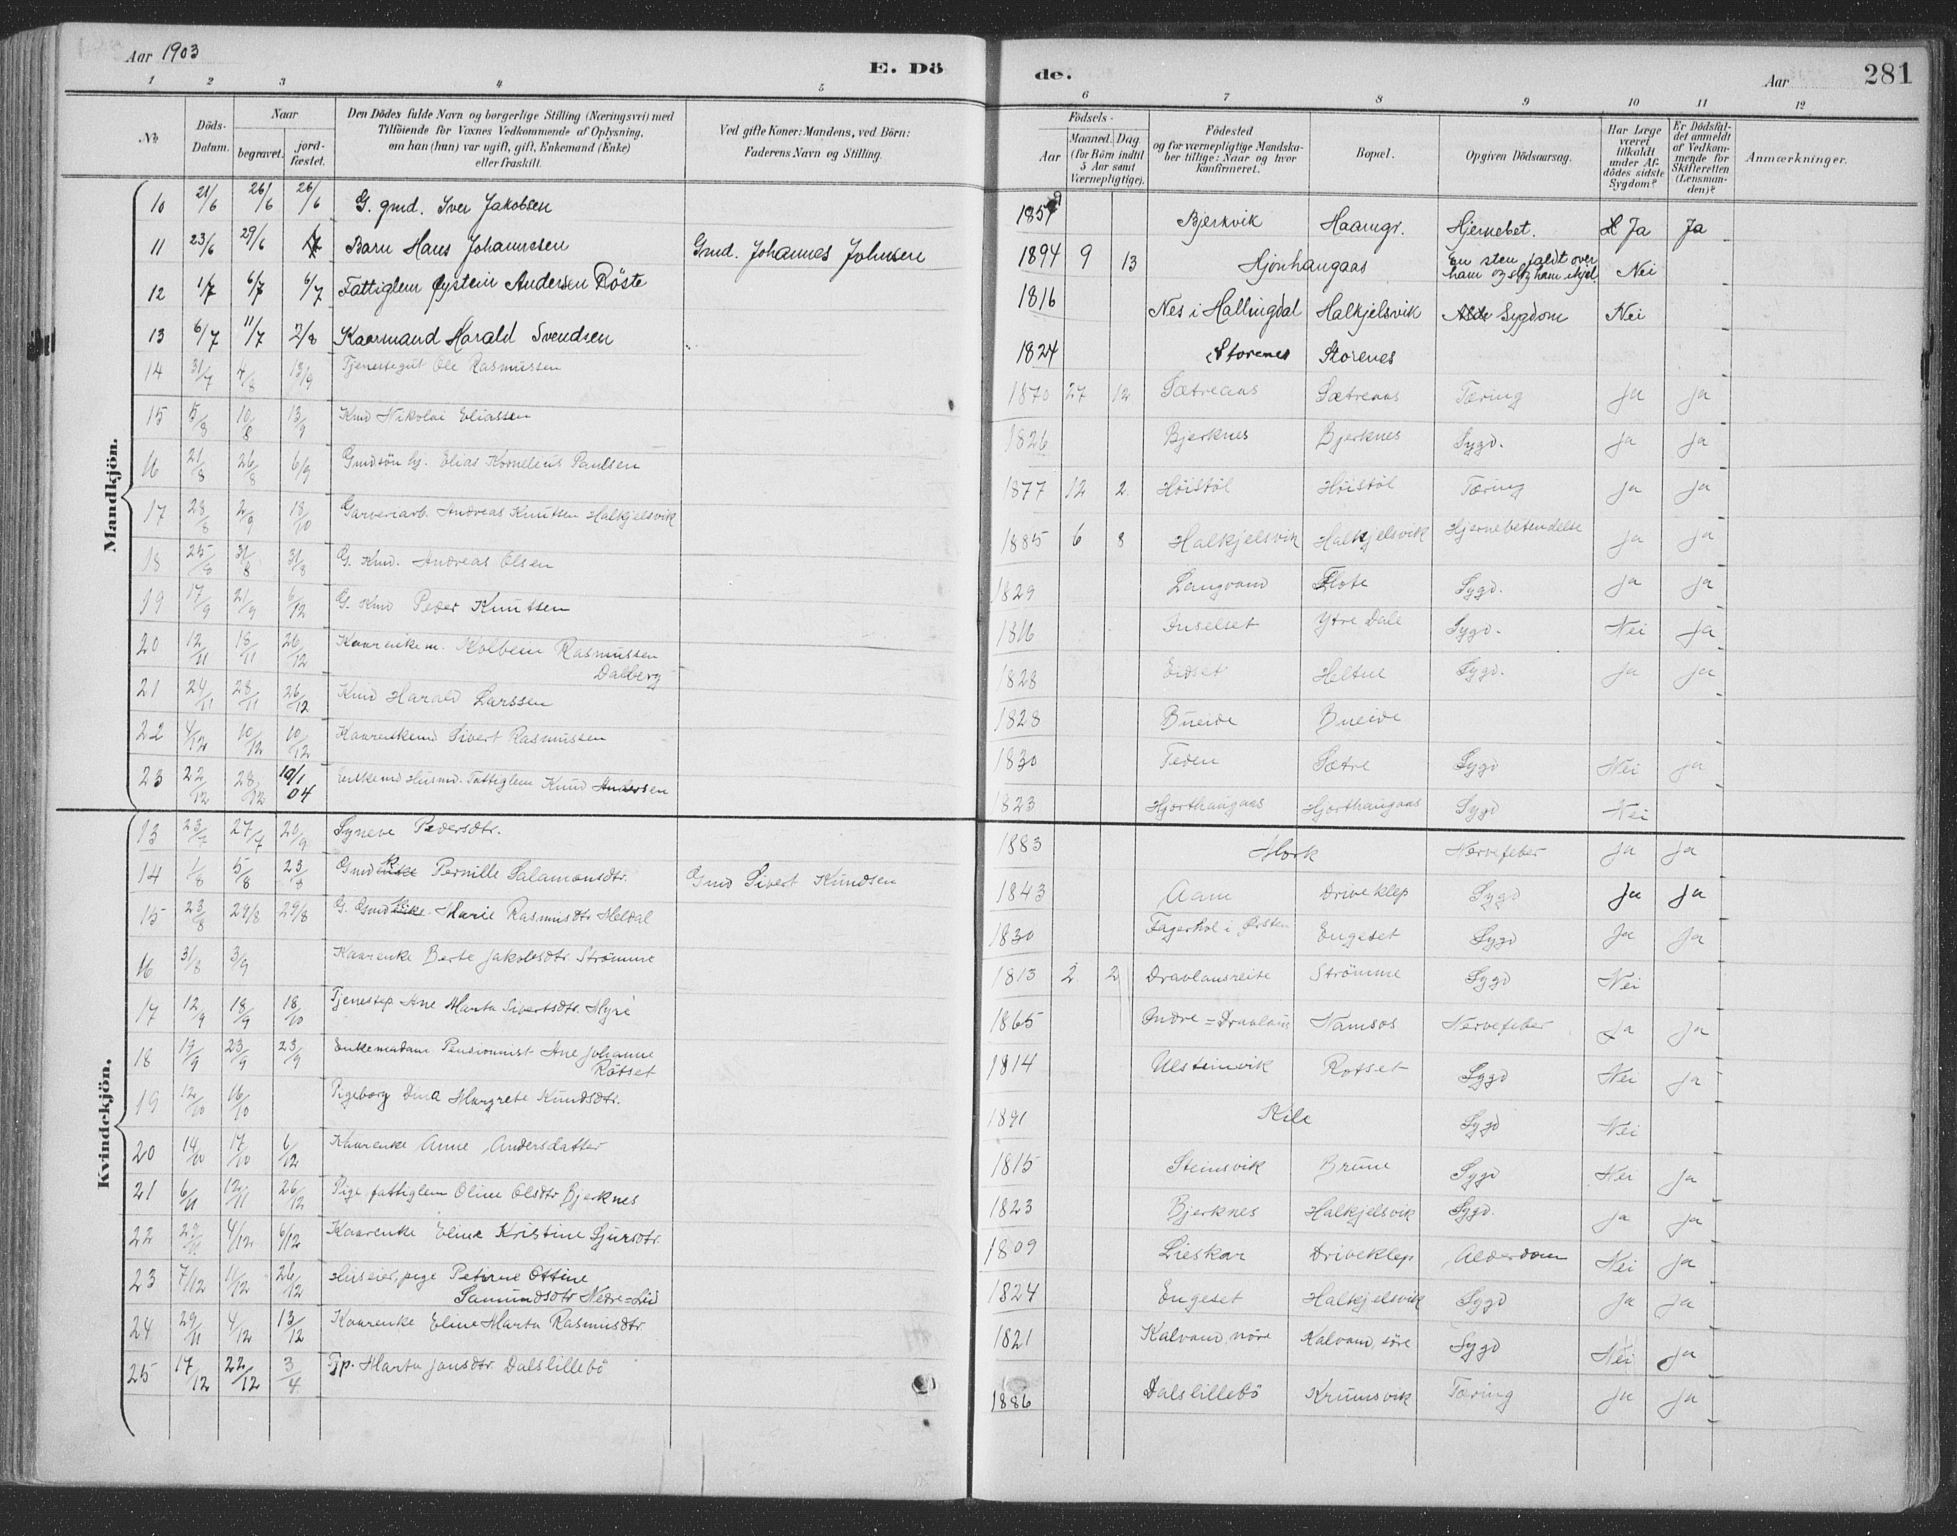 Aar 1903
E. Dö
de.
Aar
281
1 2 3 4 5 6 7 8 9 10 11 12
No
Döds-Datum.
Naar
begravet.
jord-fæstet.
Den Dödes fulde Navn og borgerlige Stilling (Næringsvei) med
Tilföiende for Voxnes Vedkommende af Oplysning,
om han (hun) var ugift, gift, Enkemand (Enke)
eller fraskilt.
Ved gifte Koner: Mandens, ved Börn:
Faderens Navn og Stilling.
Födsels-
Aar
Maaned. Dag
(for Börn indtil
5 Aar samt
Værnepligtige).
Födested
og for værnepligtige Mandska-
ber tillige: Naar og hvor
konfirmeret.
Bopæl.
Opgiven Dödsaarsag.
Har Læge
været
tilkaldt
under Af-
dödes sidste
Sygdom?
Er Dödsfal-
det anmeldt
af Vedkom-
mende for
Skifteretten
(Lensman-
den)?
Anmærkninger.
Mandkjön.
10 21/6 26/6 26/6 G. gmd. Iver Jakobsen Bjerkvik Haamgr. Hjernebet. Ja Ja
11 23/6 29/6 Barn Hans Johannesen Gmd. Johannes Johnsen 1894 9 13 Hjorthaugaas En sten faldt over ham og slog ham ihjel Nei
12 1/7 6/7 6/7 Fattiglem Øystein Andersen Röste 1816 Nes i Hallingdal Halkjelsvik Sygdom Nei
13 6/7 11/7 2/8 Kaarmand Harald Svendsen 1824 Storenes Storenes
14 31/7 4/8 13/9 Tjenestegut Ole Rasmussen 1870 27 12 Sætreaas Sætreaas Tæring Ja Ja
15 5/8 10/8 13/9 Kmd Nikolai Eliassen 1826 Bjerknes Bjerknes Sygd. Ja Ja
16 21/8 26/8 6/9 Gmdsön Elias Kornelius Paulsen 1877 12 2 Höistöl Höistöl Tæring Ja Ja
17 28/8 2/9 18/10 Garveriarb. Andreas Knutsen Halkjelsvik 1885 6 8 Halkjelsvik Halkjelsvik Hjernebetendelse Ja Ja
18 25/8 31/8 31/8 G. Kmd. Andreas Olsen 1829 Langvand Flote Sygd. Ja Ja
19 17/9 21/9 6/12 G. Kmd Peder Knutsen 1816 Inselset Ytre Dale Sygd. Nei Ja
20 12/11 18/11 26/12 Kaarenkem. Kolbein Rasmussen Dalberg 1828 Eidset Heltne Sygd. Ja Ja
21 24/11 28/11 26/12 Kmd Harald Larssen 1828 Bueide Bueide
22 4/12 10/12 10/12 Kaarenkemd Sivert Rasmussen 1830 Teden Sætre Sygd Nei Ja
23 22/12 28/12 10/1 04 Enkemd Husmd. Fattiglem Knud Andersen 1823 Hjorthaugaas Hjorthaugaas Sygd Nei
Kvindekjön.
13 23/7 27/7 20/9 Synneve Pedersdtr. 1883 Mork Nervefeber Ja Ja
14 1/8 5/8 23/8 Gmd Pernille Salamonsdtr. Gmd Sivert Knudsen 1843 Aam Driveklep Sygd Ja Ja
15 23/8 29/8 29/8 G. Gmd Marie Rasmusdtr Meldal 1830 Fagerhol i Ørsten Engeset Sygd Ja Ja
16 31/8 3/9 Kaarenke Berte Jakobsdtr Strömme 1813 2 2 Dravlausreite Strömme Sygd Nei
17 12/9 18/9 18/10 Tjenestep Ane Marta Sivertsdtr. Myre 1865 Indre=Dravlaus Namsos Nervefeber Ja Ja
18 19/9 23/9 23/9 Enkemadam Pensionnist Ane Johanne Rotset 1814 Ulsteinvik Rotset Sygd Nei Ja
19 12/10 16/10 Pigebarn Dina Margrete Knudsdtr. 1891 Kile Sygd Nei
20 14/10 17/10 6/12 Kaarenke Anne Andersdatter 1815 Steinsvik Brune Sygd Nei Ja
21 6/11 12/11 26/12 Pige fattiglem Oline Olsdtr Bjerknes 1823 Bjerknes Halkjelsvik Sygd. Ja Ja
22 4/12 6/12 Kaarenke Eline Kristine Sjursdtr. 1809 Lieskar Driveklep Alderdom Nei Ja
23 7/12 11/12 26/12 Huseier, pige Petrine Ottine Samundsdtr Nedre=Lid 1824 Engeset Halkjelsvik Sygd Ja Ja
24 29/11 4/12 13/12 Kaarenke Eline Marta Rasmusdtr. 1821 Kalvand nöre Kalvand, söre Sygd Nei Ja
25 17/12 22/12 3/4 Tjp. Marta Jonsdtr. Dalslillebö 1886 Dalslillebö Krumsvik Tæring Ja Ja